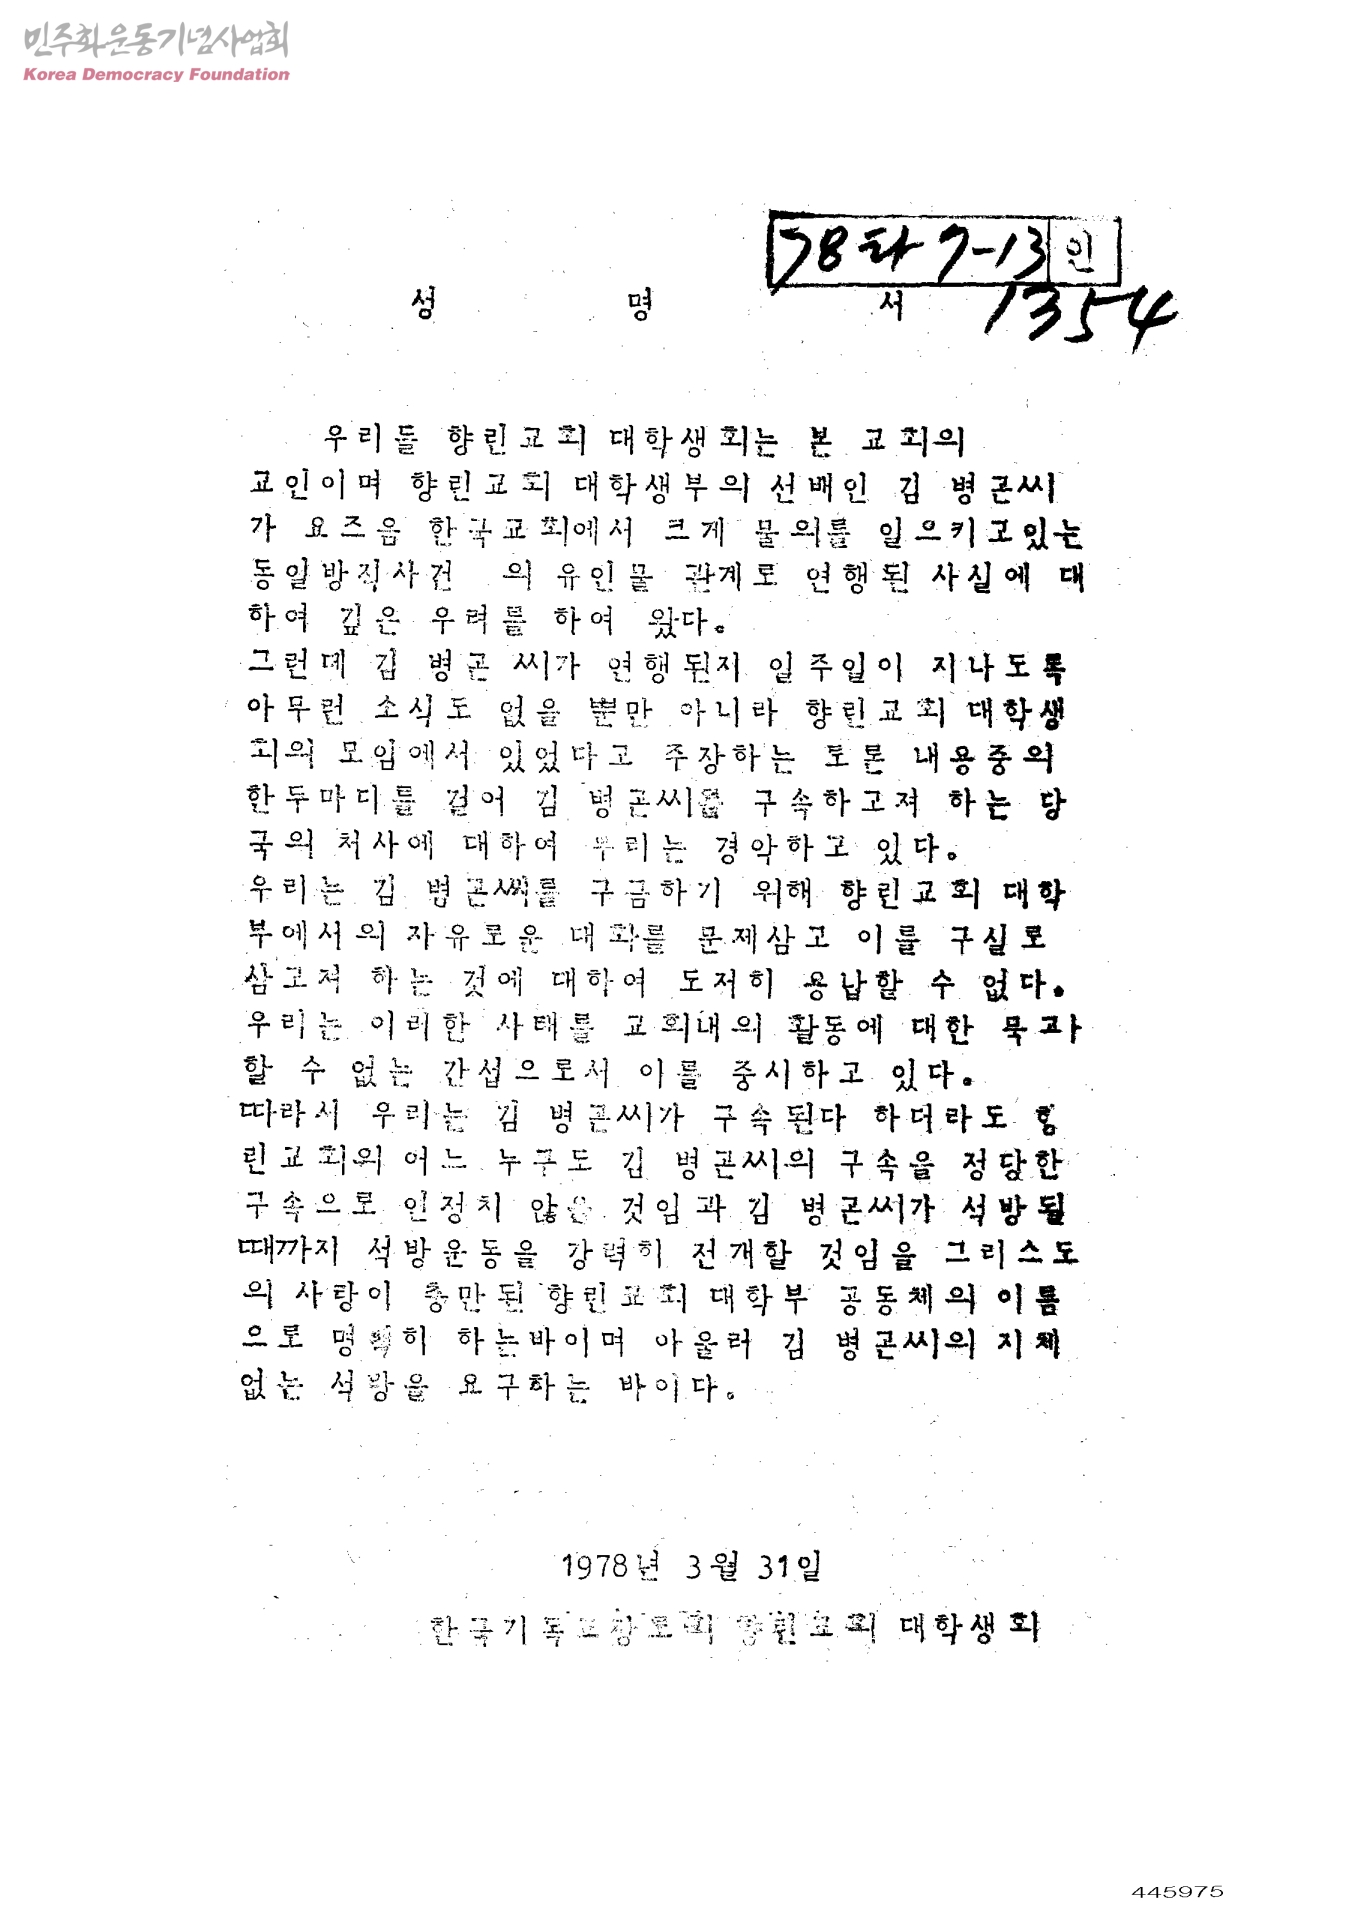 민주화운동기념사업회
Korea Democracy Foundation
78 타 7-13 인
1354
성 명 서
우리들 향린교회 대학생회는 본 교회의
교인이며 향린교회 대학생부의 선배인 김 병곤씨
가 요즈음 한국교회에서 크게 물의를 일으키고있는
동일방직사건 의 유인물 관계로 연행된 사실에 대
하여 깊은 우려를 하여 왔다.
그런데 김 병곤 씨가 연행된지 일주일이 지나도록
아무런 소식도 없을 뿐만 아니라 향린교회 대학생
회의 모임에서 있었다고 주장하는 토론 내용중의
한두마디를 걸어 김 병곤씨를 구속하고져 하는 당
국의 처사에 대하여 우리는 경악하고 있다.
우리는 김 병곤씨를 구금하기 위해 향린교회 대학
부에서의 자유로운 대화를 문제삼고 이를 구실로
삼고져 하는 것에 대하여 도저히 용납할 수 없다.
우리는 이러한 사태를 교회내의 활동에 대한 묵과
할 수 없는 간섭으로서 이를 중시하고 있다.
따라서 우리는 김 병곤씨가 구속된다 하더라도 향
린교회의 어느 누구도 김 병곤씨의 구속을 정당한
구속으로 인정치 않을 것임과 김 병곤씨가 석방될
때까지 석방운동을 강력히 전개할 것임을 그리스도
의 사랑이 충만된 향린교회 대학부 공동체의 이름
으로 명확히 하는바이며 아울러 김 병곤씨의 지체
없는 석방을 요구하는 바이다.
1978년 3월 31일
한국기독교장로회 향린교회 대학생회
445975